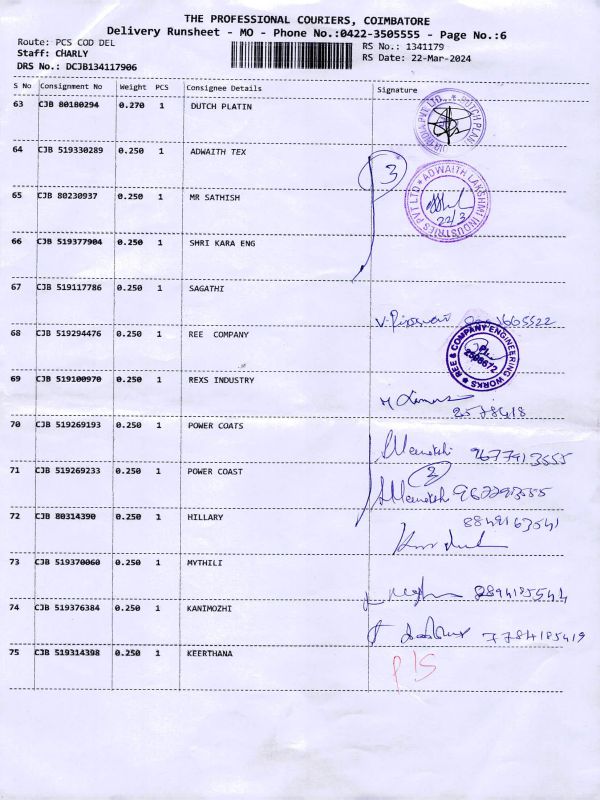 THE PROFESSIONAL COURIERS, COIMBATORE
Delivery Runsheet - MO - Phone No.:0422-3505555 - Page No.:6
Route: PCS COD DEL
RS No.: 1341179
Staff: CHARLY
RS Date: 22-Mar-2024
DRS No.: DCJB134117906
S No Consignment No Weight PCS Consignee Details Signature
63 CJB 80180294 0.270 1 DUTCH PLATIN
64 CJB 519330289 0.250 1 ADWAITH TEX
3
ADWAITH LAKSHMI INDUSTRIES PVT LTD
65 CJB 80230937 0.250 1 MR SATHISH
22/3
66 CJB 519377904 0.250 1 SHRI KARA ENG
67 CJB 519117786 0.250 1 SAGATHI
68 CJB 519294476 0.250 1 REE COMPANY
REE & COMPANY ENGINEERING WORKS
69 CJB 519100970 0.250 1 REXS INDUSTRY
2578418
70 CJB 519269193 0.250 1 POWER COATS
9677913555
71 CJB 519269233 0.250 1 POWER COAST
2
72 CJB 80314390 0.250 1 HILLARY
8849163541
73 CJB 519370060 0.250 1 MYTHILI
74 CJB 519376384 0.250 1 KANIMOZHI
7784185419
75 CJB 519314398 0.250 1 KEERTHANA